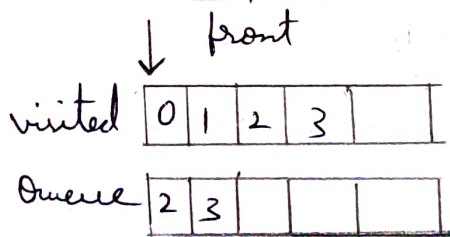 front
visited 0 1 2 3
Queue 2 3